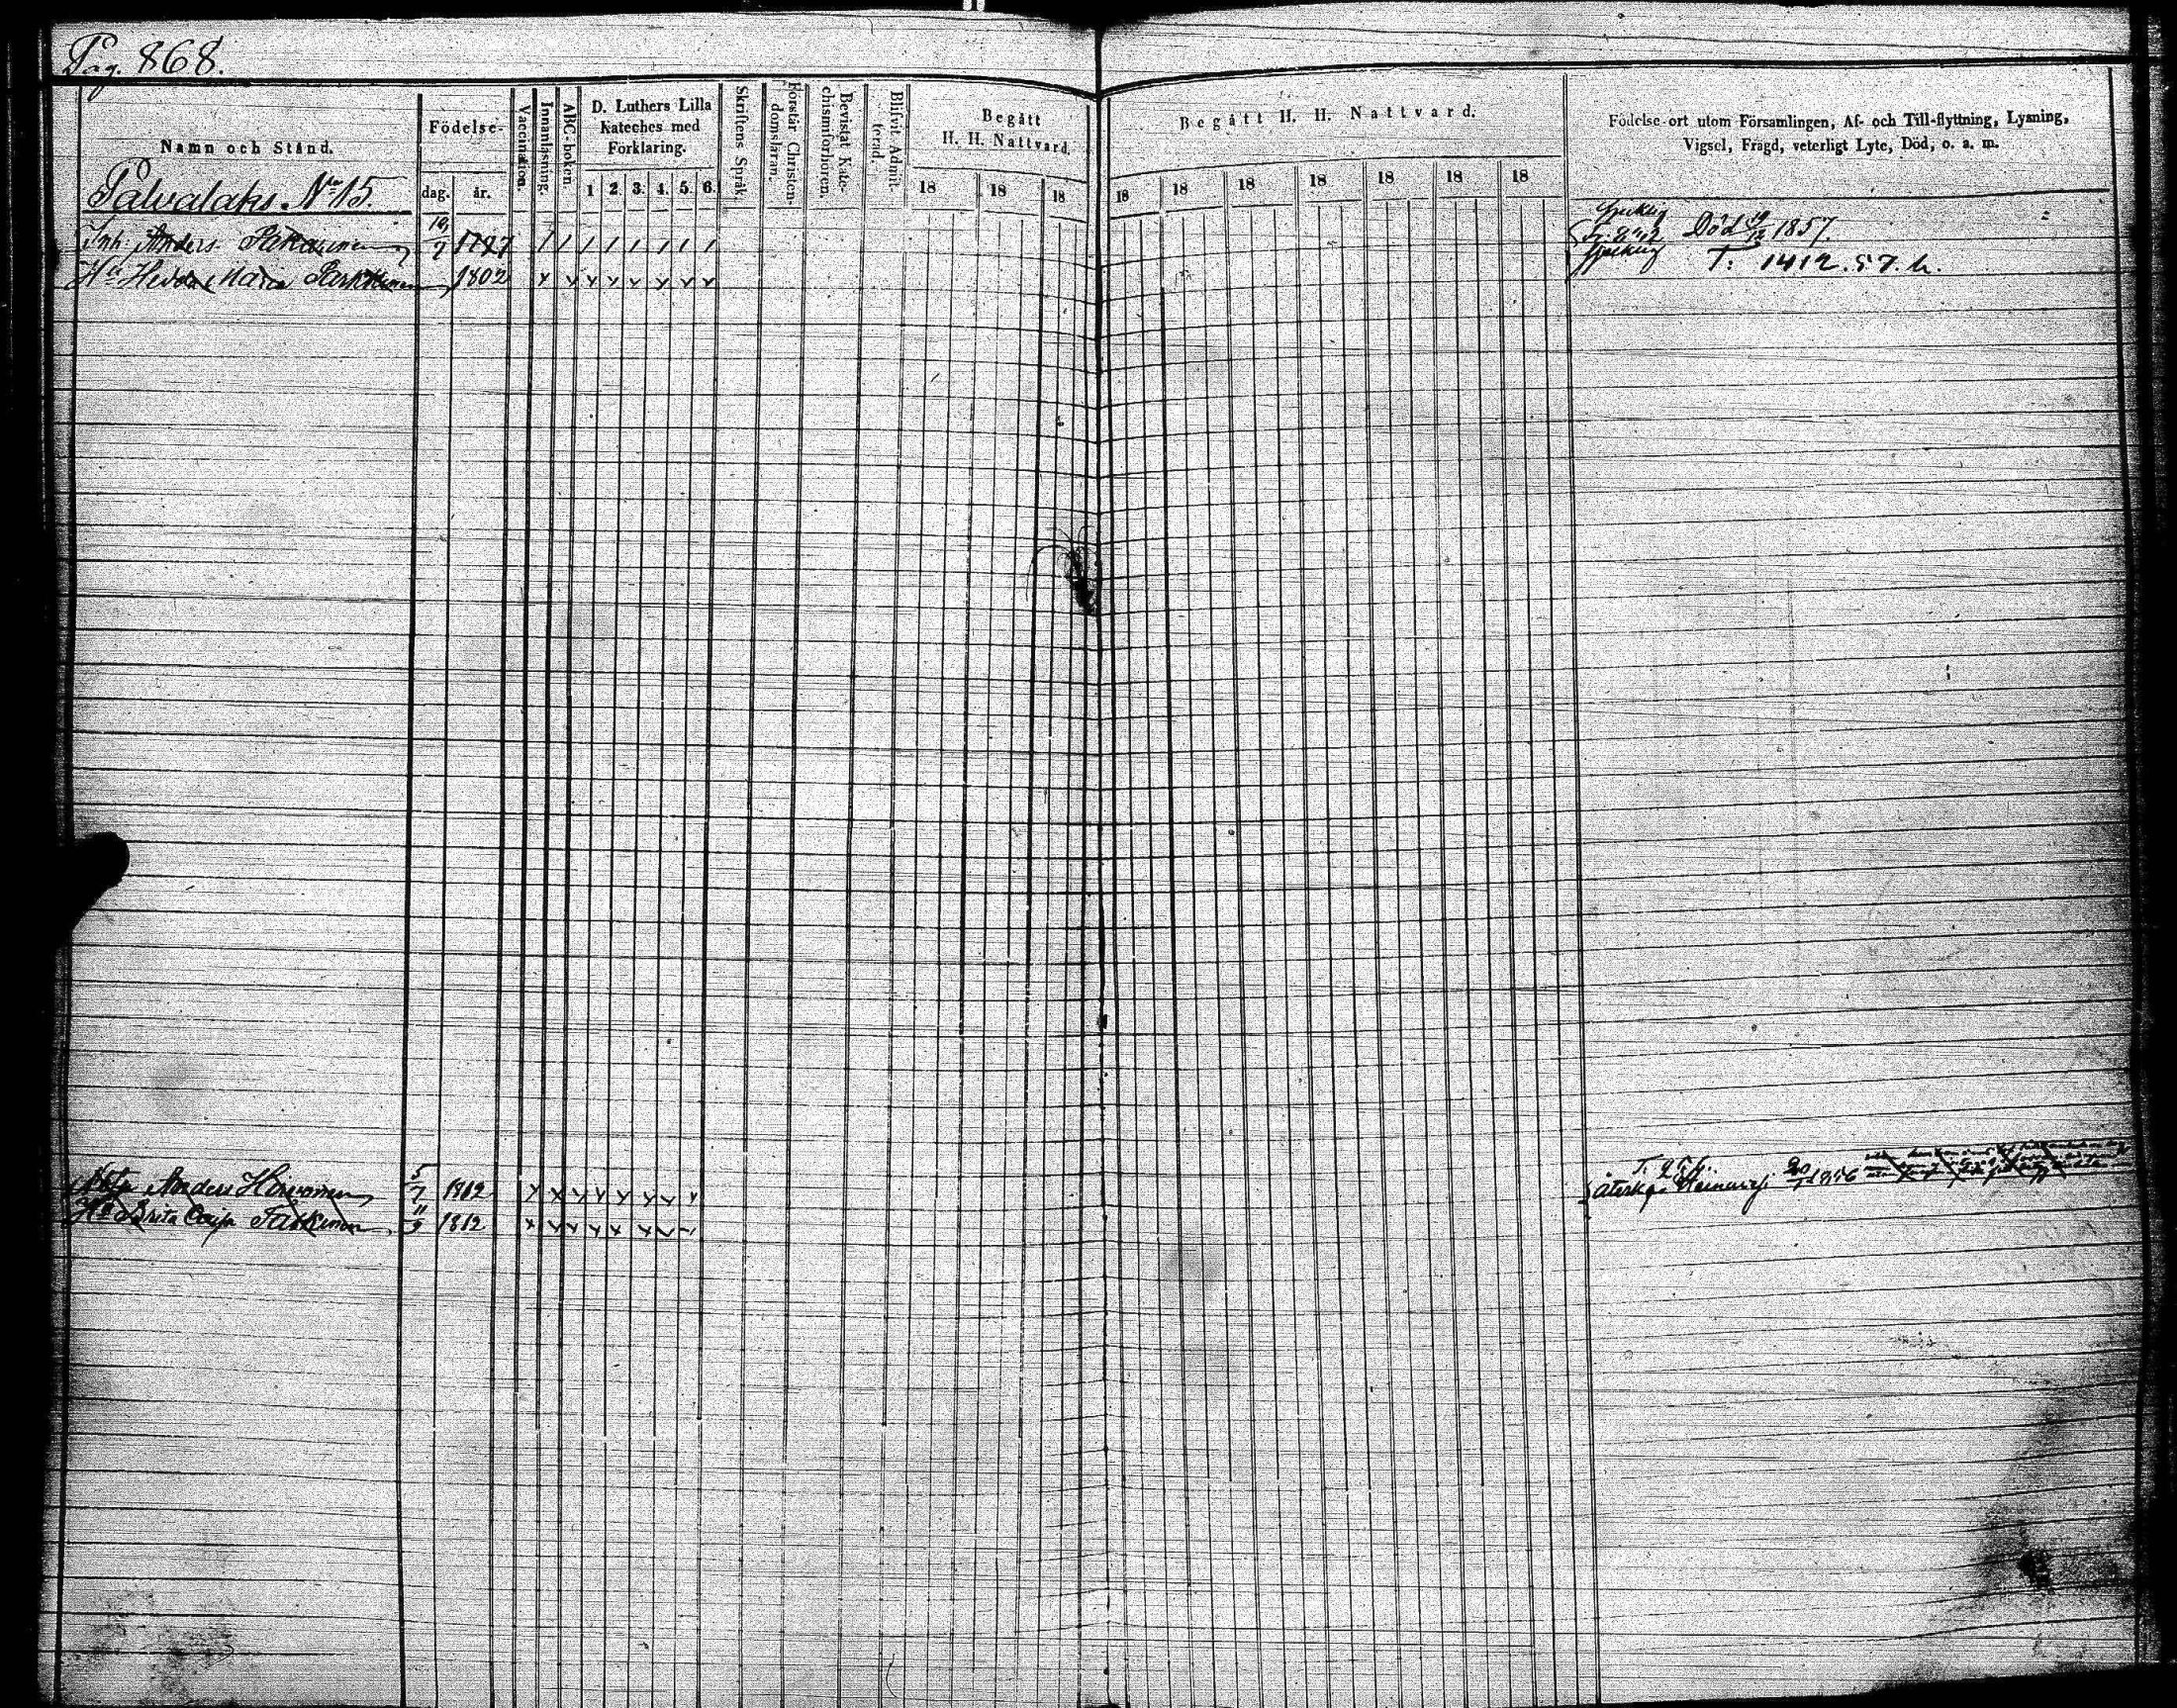 Pag. 868.
Namn och Stånd.
Födelse-
dag. år.
Vaccination.
Innanläsning.
ABC-boken
D. Luthers Lilla
Kateches med
Förklaring.
1 2. 3. 4. 5. 6.
Skriftens Språk.
Förstår Christen-
domsläran.
Bevistat Kate-
chismiförhören.
Blifvit Admit-
terad.
Begått
H. H. Nattvard.
18 18 18
Begått H. H. Nattvard.
18 18 18 18 18 18 18
Födelse-ort utom Församlingen, Af- och Till-flyttning, Lysning,
Vigsel, Frägd, veterligt Lyte, Död, o. a. m.
Palvalaks No 15.
Inh. Anders 19/7 1787 Död 1857.
Hu Hedda Maria 1802 T. 1412. 57. h.
Anders Hirvonen 5/7 1812 1856
Hu Brita Caisa Parkinen 11/9 1812